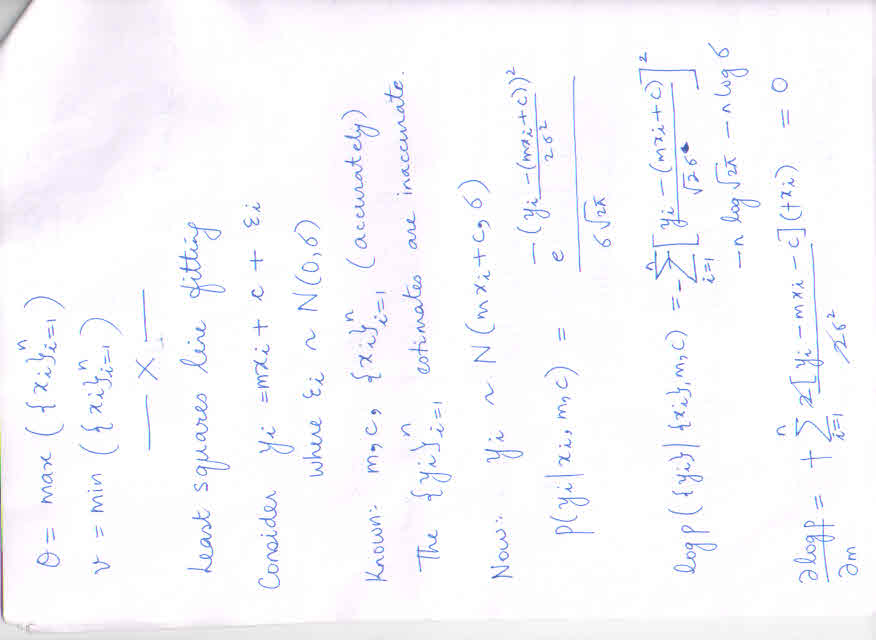 θ = max ({xi}ⁿi=1)
v = min ({xi}ⁿi=1)
— X —
Least squares line fitting
Consider yi = mxi + c + εi
where εi ~ N(0,σ)
Known: m, c, {xi}ⁿi=1 (accurately)
The {yi}ⁿi=1 estimates are inaccurate.
Now: yi ~ N(mxi+c, σ)
p(yi|xi, m, c) = e^(-(yi-(mxi+c))²/2σ²) / σ√2π
log p({yi}|{xi}, m, c) = -∑ⁿi=1 [yi-(mxi+c)/√2σ]²
-n log √2π - n log σ
∂log p/∂m = +∑ⁿi=1 2[yi-mxi-c](+xi)/2σ² = 0